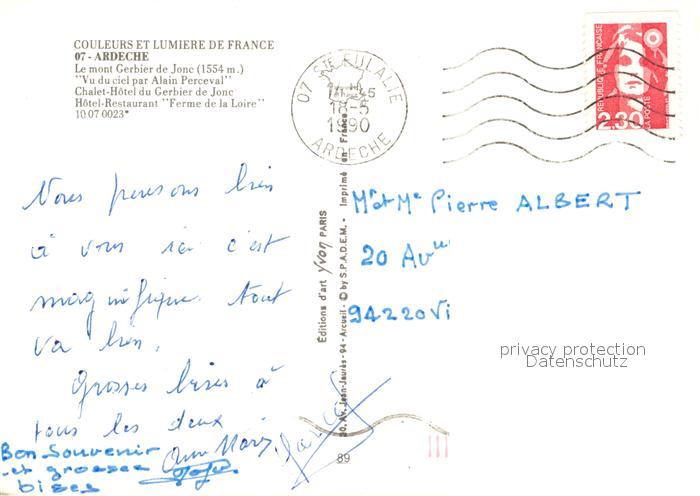 COULEURS ET LUMIERE DE FRANCE
07 - ARDECHE
Le mont Gerbier de Jonc (1554 m.)
"Vu du ciel par Alain Perceval"
Chalet-Hôtel du Gerbier de Jonc
Hôtel-Restaurant "Ferme de la Loire"
10 07 0023*
07 STE EULALIE
1990
ARDECHE
REPUBLIQUE FRANÇAISE
2,30
LA POSTE
Nous pensons bien
à vous ici c'est
magnifique tout
va bien.
Grosses bises à
tous les deux
Anne Marie
Bon Souvenir
et grosses
bises
Editions d'art yvon PARIS
30, Av. Jean-Jaurès - 94 - Arcueil - © by S.P.A.D.E.M. - Imprimé en France
89
Mr et Me Pierre ALBERT
20 Avue
94220 Vi
privacy protection
Datenschutz